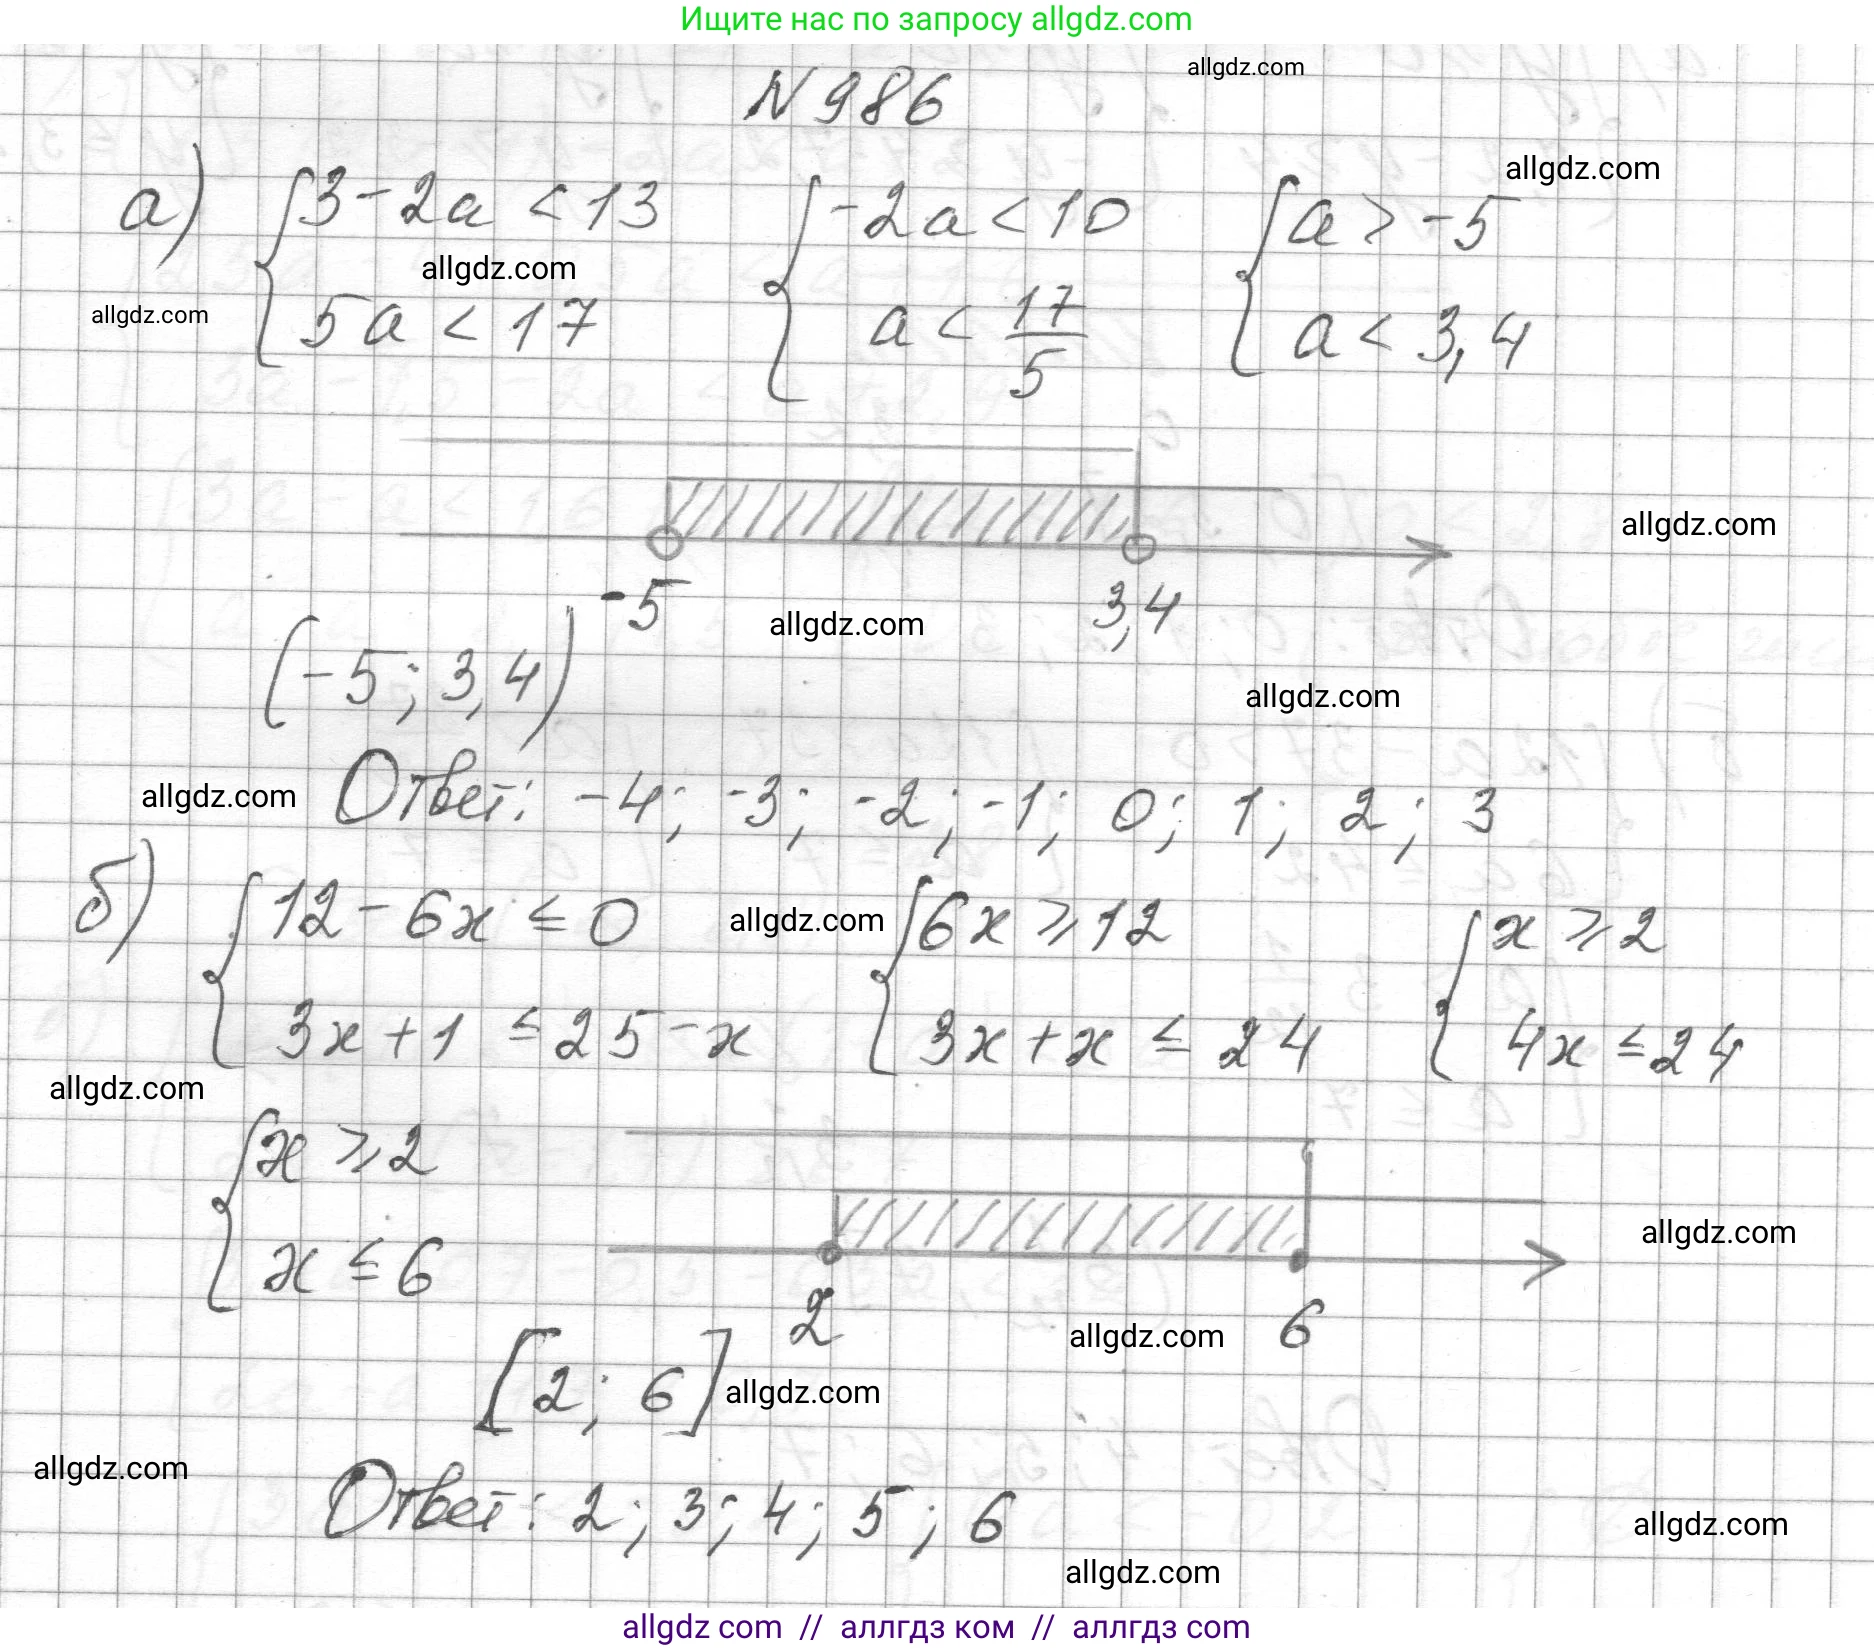 Ищите нас по запросу allgdz.com
allgdz.com
N 986
allgdz.com
а) { 3 - 2a < 13 { -2a < 10 { a > -5
allgdz.com
allgdz.com
{ 5a < 17 { a < 17/5 { a < 3,4
allgdz.com
-5 3,4
allgdz.com
(-5; 3,4)
allgdz.com
allgdz.com
Ответ: -4; -3; -2; -1; 0; 1; 2; 3
б) { 12 - 6x ≤ 0 { 6x ⩾ 12 { x ⩾ 2
allgdz.com
{ 3x + 1 ≤ 25 - x { 3x + x ≤ 24 { 4x ≤ 24
allgdz.com
{ x ⩾ 2
allgdz.com
{ x ≤ 6
2 6
allgdz.com
[2; 6]
allgdz.com
allgdz.com
Ответ: 2; 3; 4; 5; 6
allgdz.com
allgdz.com
allgdz com // аллгдз ком // аллгдз com